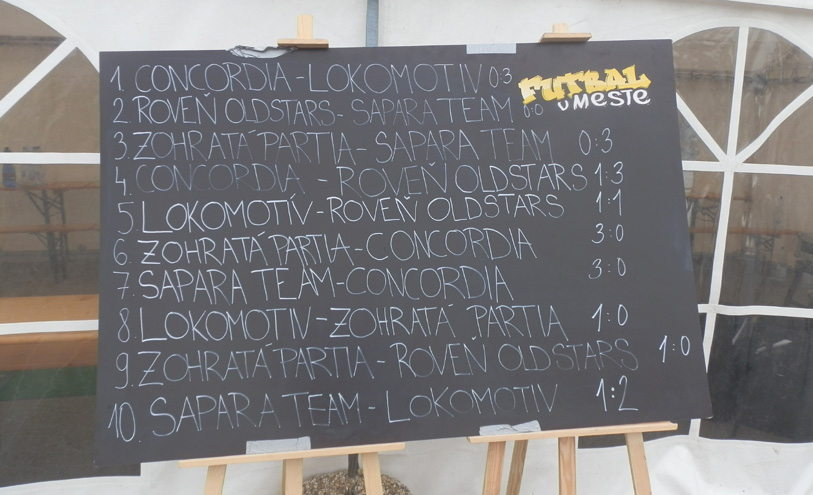 1. CONCORDIA-LOKOMOTIV 0:3
FUTBAL
V MESTE
2. ROVEŇ OLDSTARS-SAPARA TEAM 0:0
3. ZOHRATÁ PARTIA-SAPARA TEAM 0:3
4. CONCORDIA - ROVEŇ OLDSTARS 1:3
5. LOKOMOTÍV-ROVEŇ OLDSTARS 1:1
6. ZOHRATÁ PARTIA-CONCORDIA 3:0
7. SAPARA TEAM-CONCORDIA 3:0
8. LOKOMOTIV-ZOHRATÁ PARTIA 1:0
9. ZOHRATÁ PARTIA-ROVEŇ OLDSTARS 1:0
10. SAPARA TEAM-LOKOMOTIV 1:2